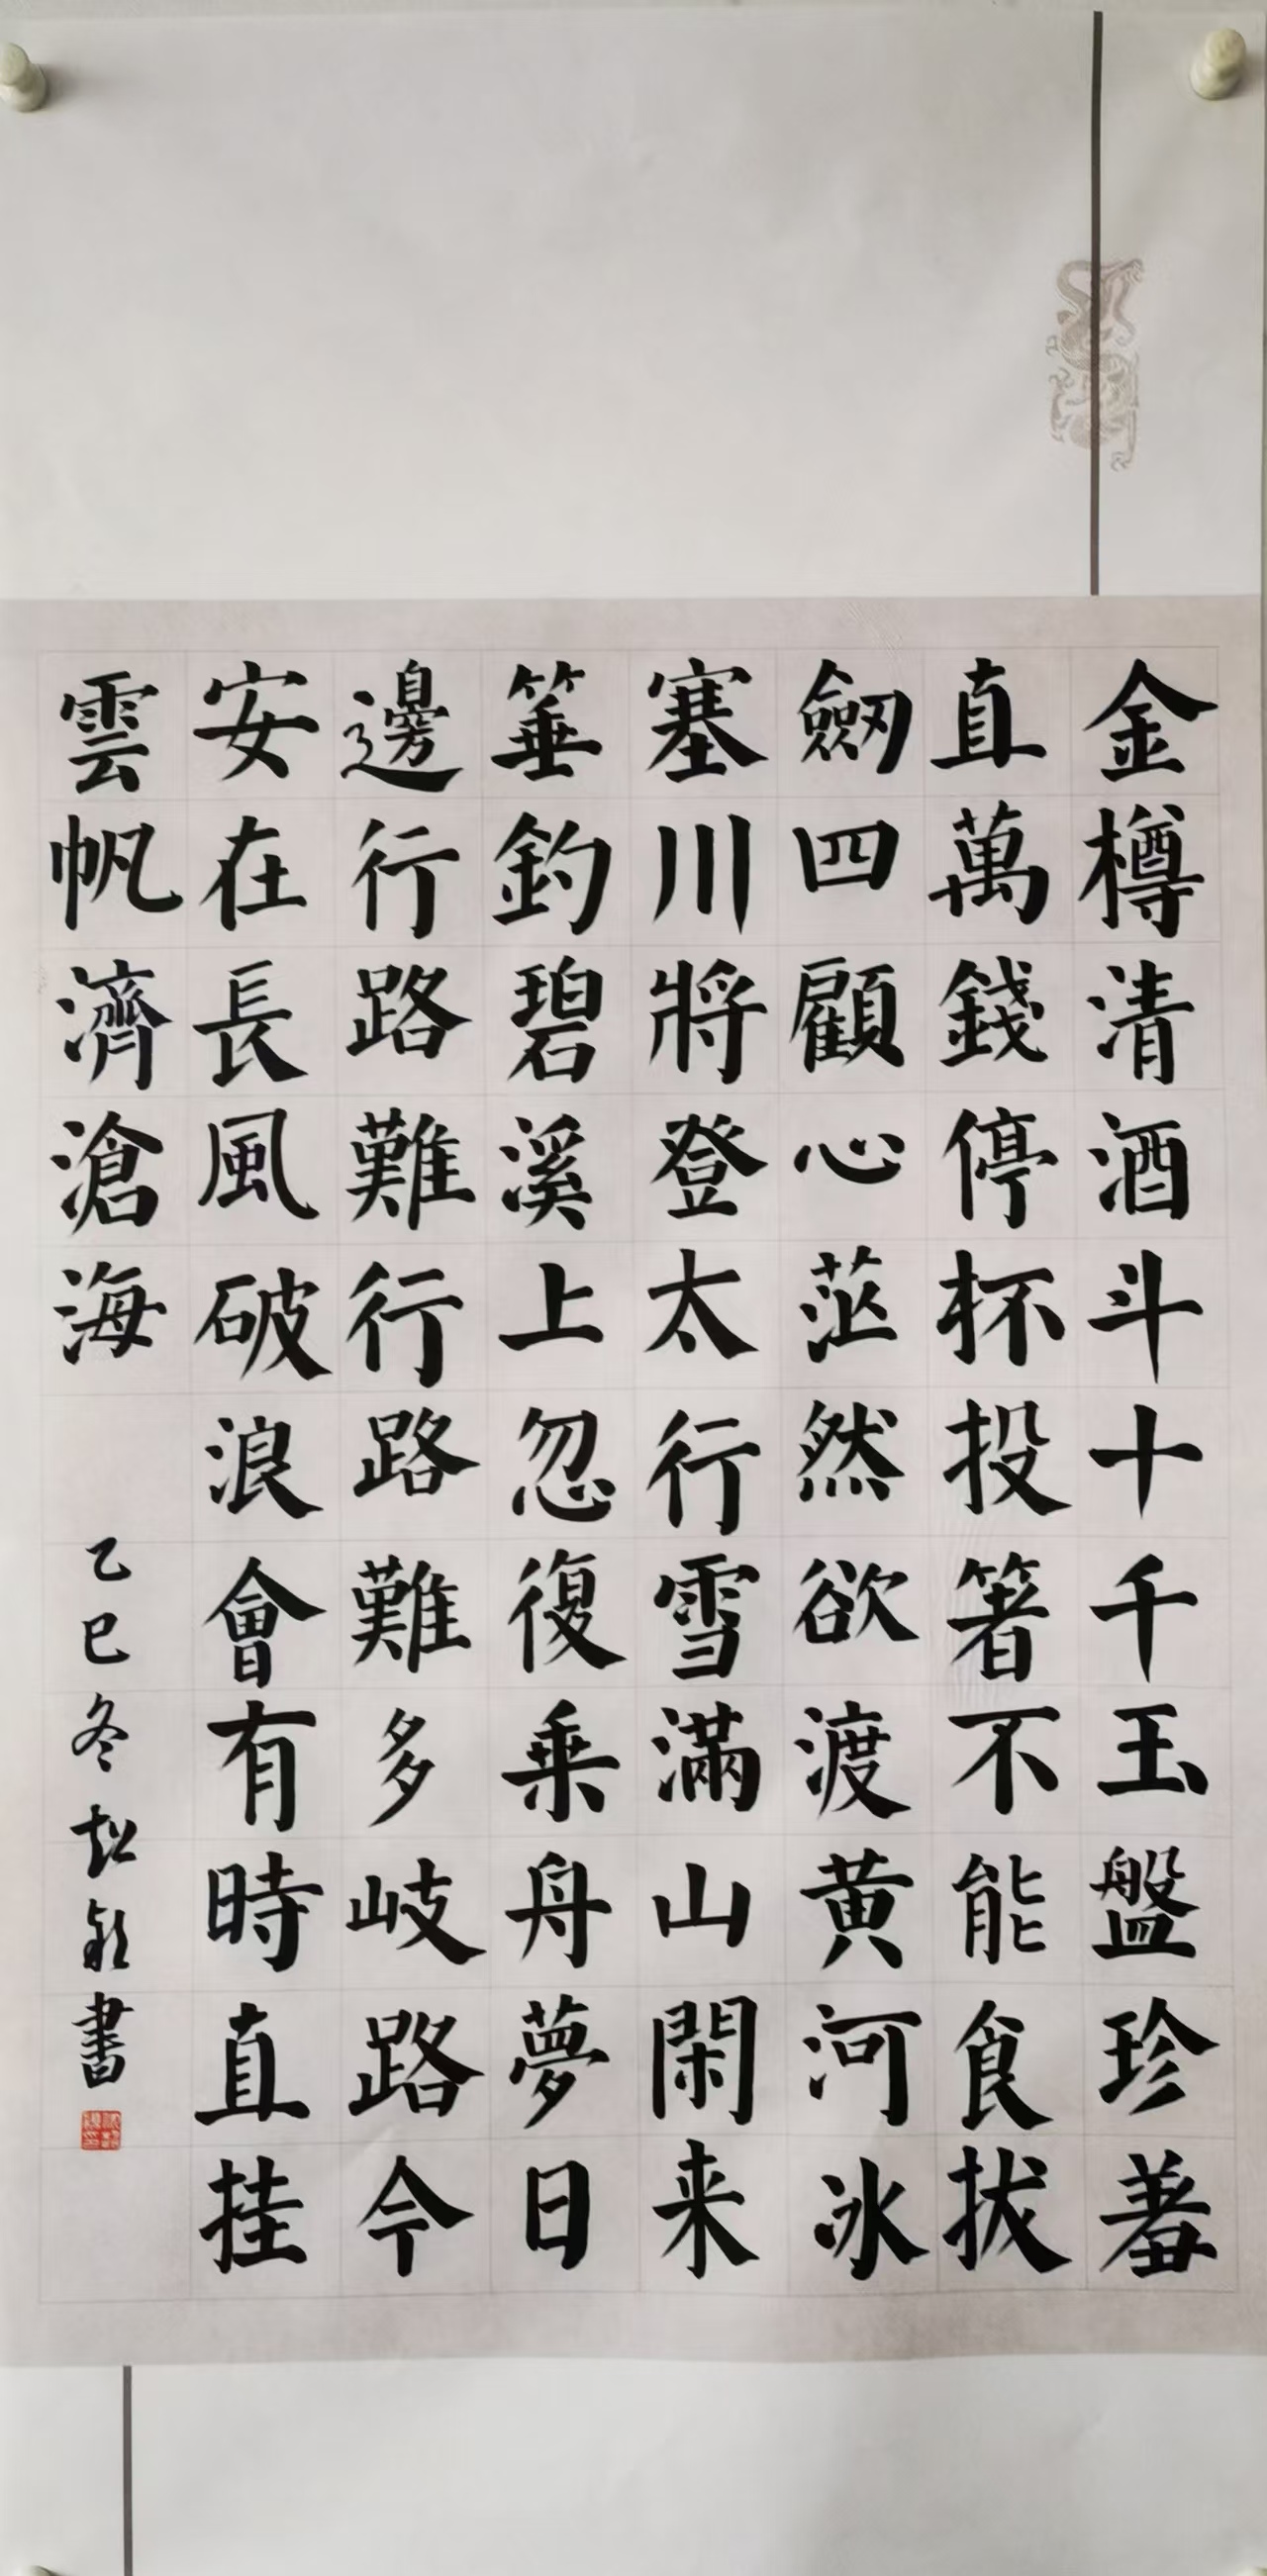 金樽清酒斗十千玉盤珍羞
直萬錢停杯投箸不能食拔
劒四顧心茫然欲渡黄河冰
塞川將登太行雪滿山閑来
箠釣碧溪上忽復乗舟夢日
邊行路難行路難多岐路今
安在長風破浪會有時直挂
雲帆濟滄海
乙巳冬書